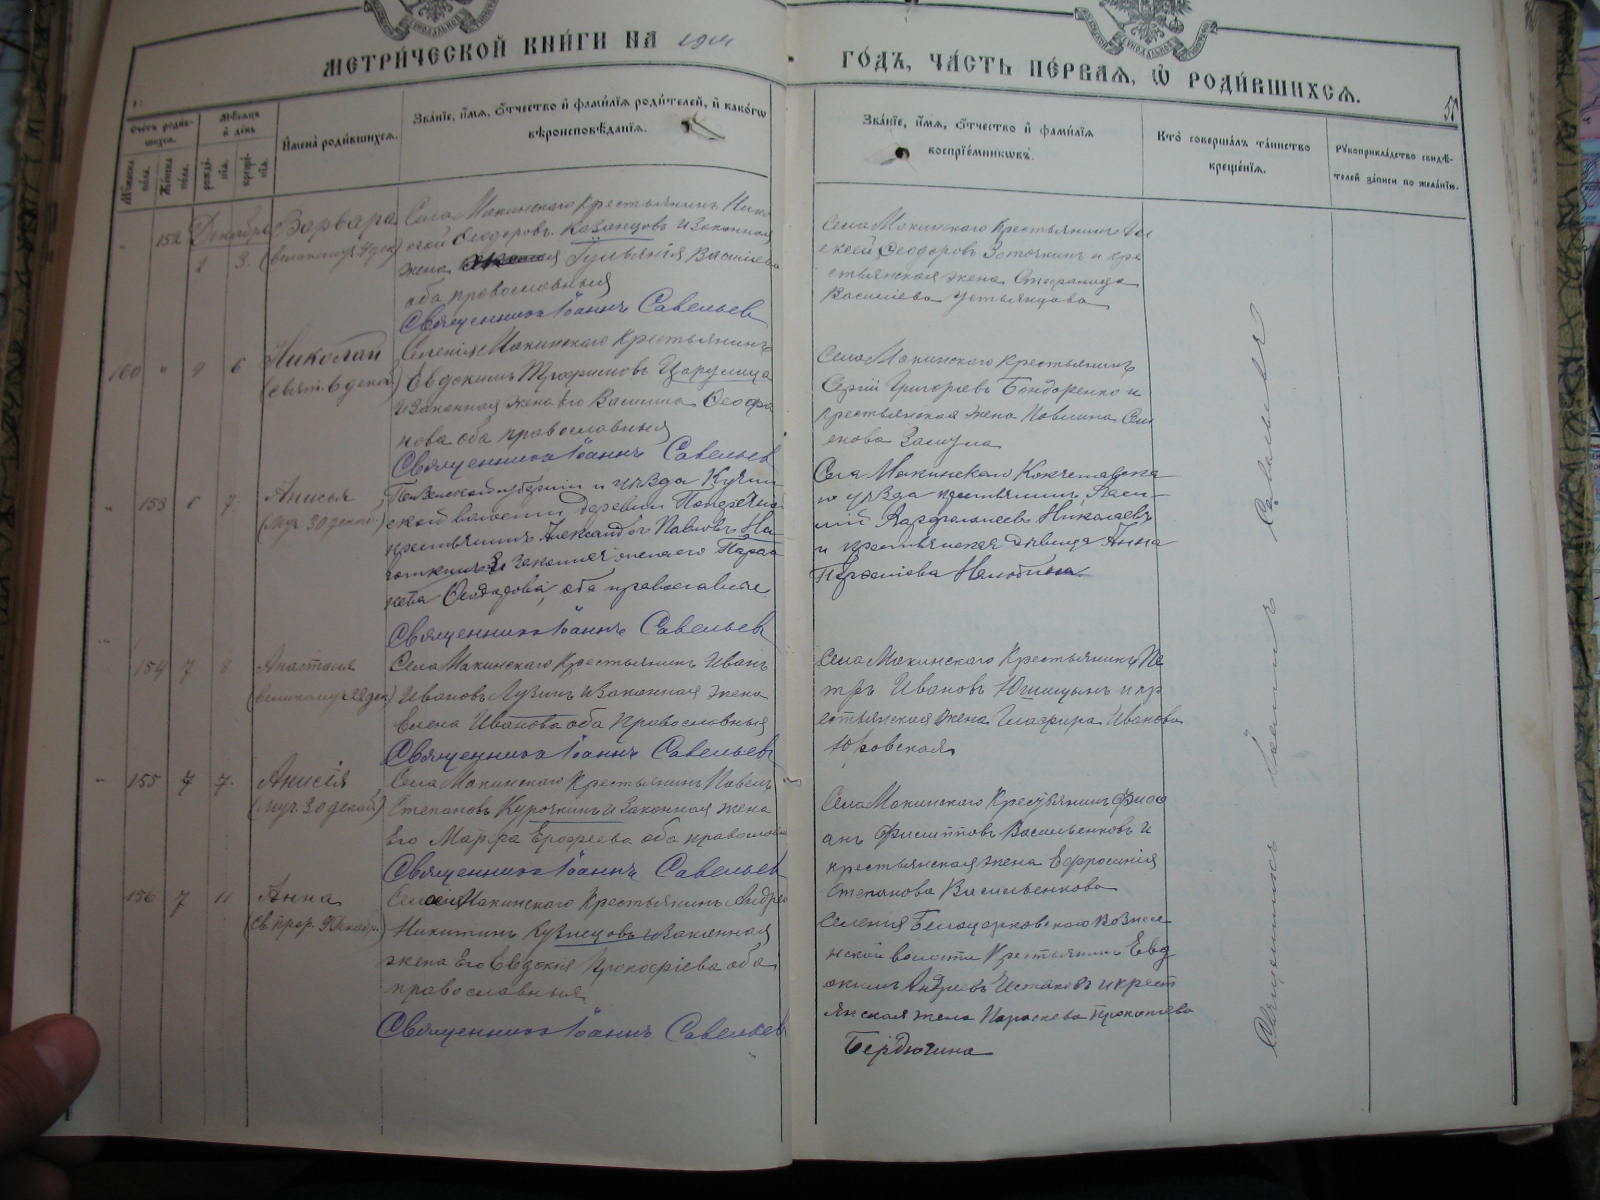 МЕТРИ́ЧЕСКОЙ КНИ́ГИ НА 1914 ГО́ДЪ, ЧА́СТЬ ПЕ́РВАЯ, Ѡ РОДИ́ВШИХСѦ.
50
Счетъ роди́вшихсѧ.
Му́жеска по́ла.
Же́нска по́ла.
Мѣ́сѧцъ и де́нь
рожде́нїѧ.
креще́нїѧ.
И҆мена̀ роди́вшихсѧ.
Зва́нїе, и҆́мѧ, ѻ҆́тчество и҆ фами́лїѧ роди́телей, и҆ како́гѡ
вѣроисповѣ́данїѧ.
Зва́нїе, и҆́мѧ, ѻ҆́тчество и҆ фами́лїѧ
воспрїе́мникѡвъ.
Кто̀ соверша́лъ та́инство
креще́нїѧ.
Рꙋкоприкла́дство свидѣ́-
телей за́писи по жела́нїю.
" 152 Декабрь 2 3. Варвара
(великомуч. 4 дек.)
Села Макинскаго крестьянинъ Нико
лай Ѳеодоровъ Казанцовъ и законная
жена Гульянія Васильева
оба православныя
Священникъ Іоаннъ Савельевъ
Села Макинскаго Крестьянинъ Ал
ексѣй Ѳеодоровъ Заточкинъ и кре
стьянская жена Стефанида
Василіева Устьянцова
160 " 2 6 Николай
(свят. 6 декаб.)
Селенія Макинскаго Крестьянинъ
Евдокимъ Трофимовъ Царулица
и законная жена его Василиса Ѳеофа
нова оба православныя
Священникъ Іоаннъ Савельевъ
Села Макинскаго Крестьянинъ
Сергій Григорьевъ Бондаренко и
крестьянская жена Павлина Сем
енова Замула
" 153 6 7. Анисья
(муч. 30 декаб.)
Пензенской губерніи и уѣзда Кучкин
ской волости, деревни Поперечной
крестьянинъ Александръ Павловъ На
и законная жена его Параск
Ѳеодорова, оба православные
Священникъ Іоаннъ Савельевъ
Села Макинскаго Кокчетавска
го уѣзда крестьянинъ Васи-
лій Варфоломеевъ Николаевъ
и крестьянская дѣвица Анна
" 154 7 8. Анастасія
(великомуч. 22 дек.)
Села Макинскаго Крестьянинъ Иванъ
Ивановъ Лузинъ и законная жена
Елена Иванова оба православныя
Священникъ Іоаннъ Савельевъ
Села Макинскаго Крестьянинъ Пе
тръ Ивановъ и кр
естьянская жена Глафира Иванова
Юровская
" 155 7 7. Анисія
(муч. 30 декаб.)
Села Макинскаго Крестьянинъ Павелъ
Степановъ Курочкинъ и законная жена
Его Марфа Ерофеева оба православны
Священникъ Іоаннъ Савельевъ
Села Макинскаго Крестьянинъ
Филипповъ Васильенковъ и
крестьянская жена Ефросинія
Степанова Васильенкова
156 7 11 Анна
(Св. прор. 9 Декабр.)
Селенія Макинскаго Крестьянинъ Андрей
Никитинъ Кузнецовъ и законная
жена Его Евдокія Прокофіева оба
православныя
Священникъ Іоаннъ Савельевъ
Селенія Бѣлоцерковскаго Вознесе
нской волости Крестьянинъ Евд
окимъ Андреевъ и крест
янская жена Параскева Прокопіева
Бердюгина
Священникъ Іоаннъ Савельевъ